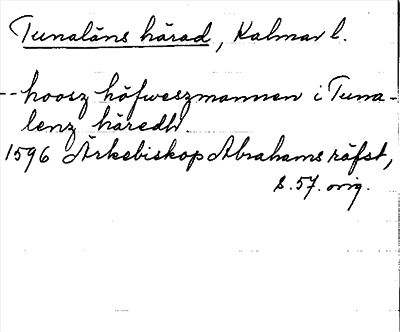 Tunaläns härad, Kalmar l.
-- hoosz höfweszmannen i Tuna-
lenz häredh.
1596 Ärkebiskop Abrahams räfst,
s. 57. orig.